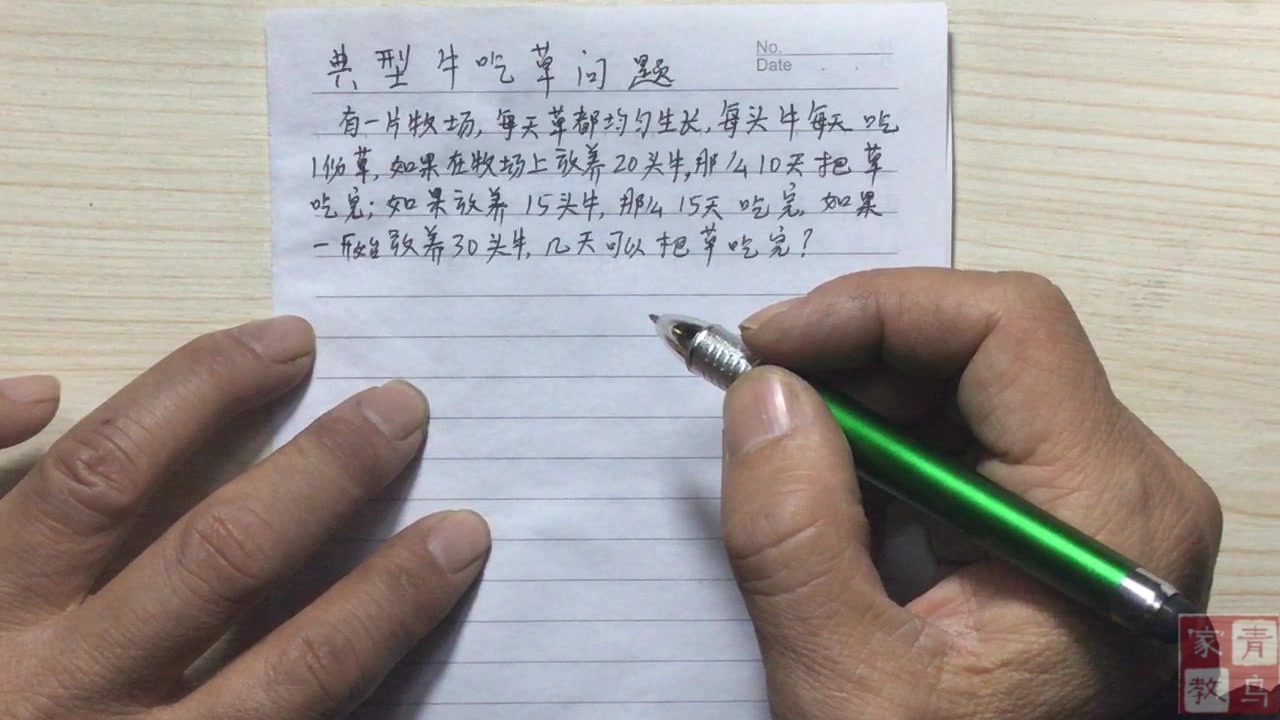 典型牛吃草问题
No.
Date
有一片牧场,每天草都均匀生长,每头牛每天吃
1份草,如果在牧场上放养20头牛,那么10天把草
吃完;如果放养15头牛,那么15天吃完,如果
一开始放养30头牛,几天可以把草吃完?
家青
教鸟